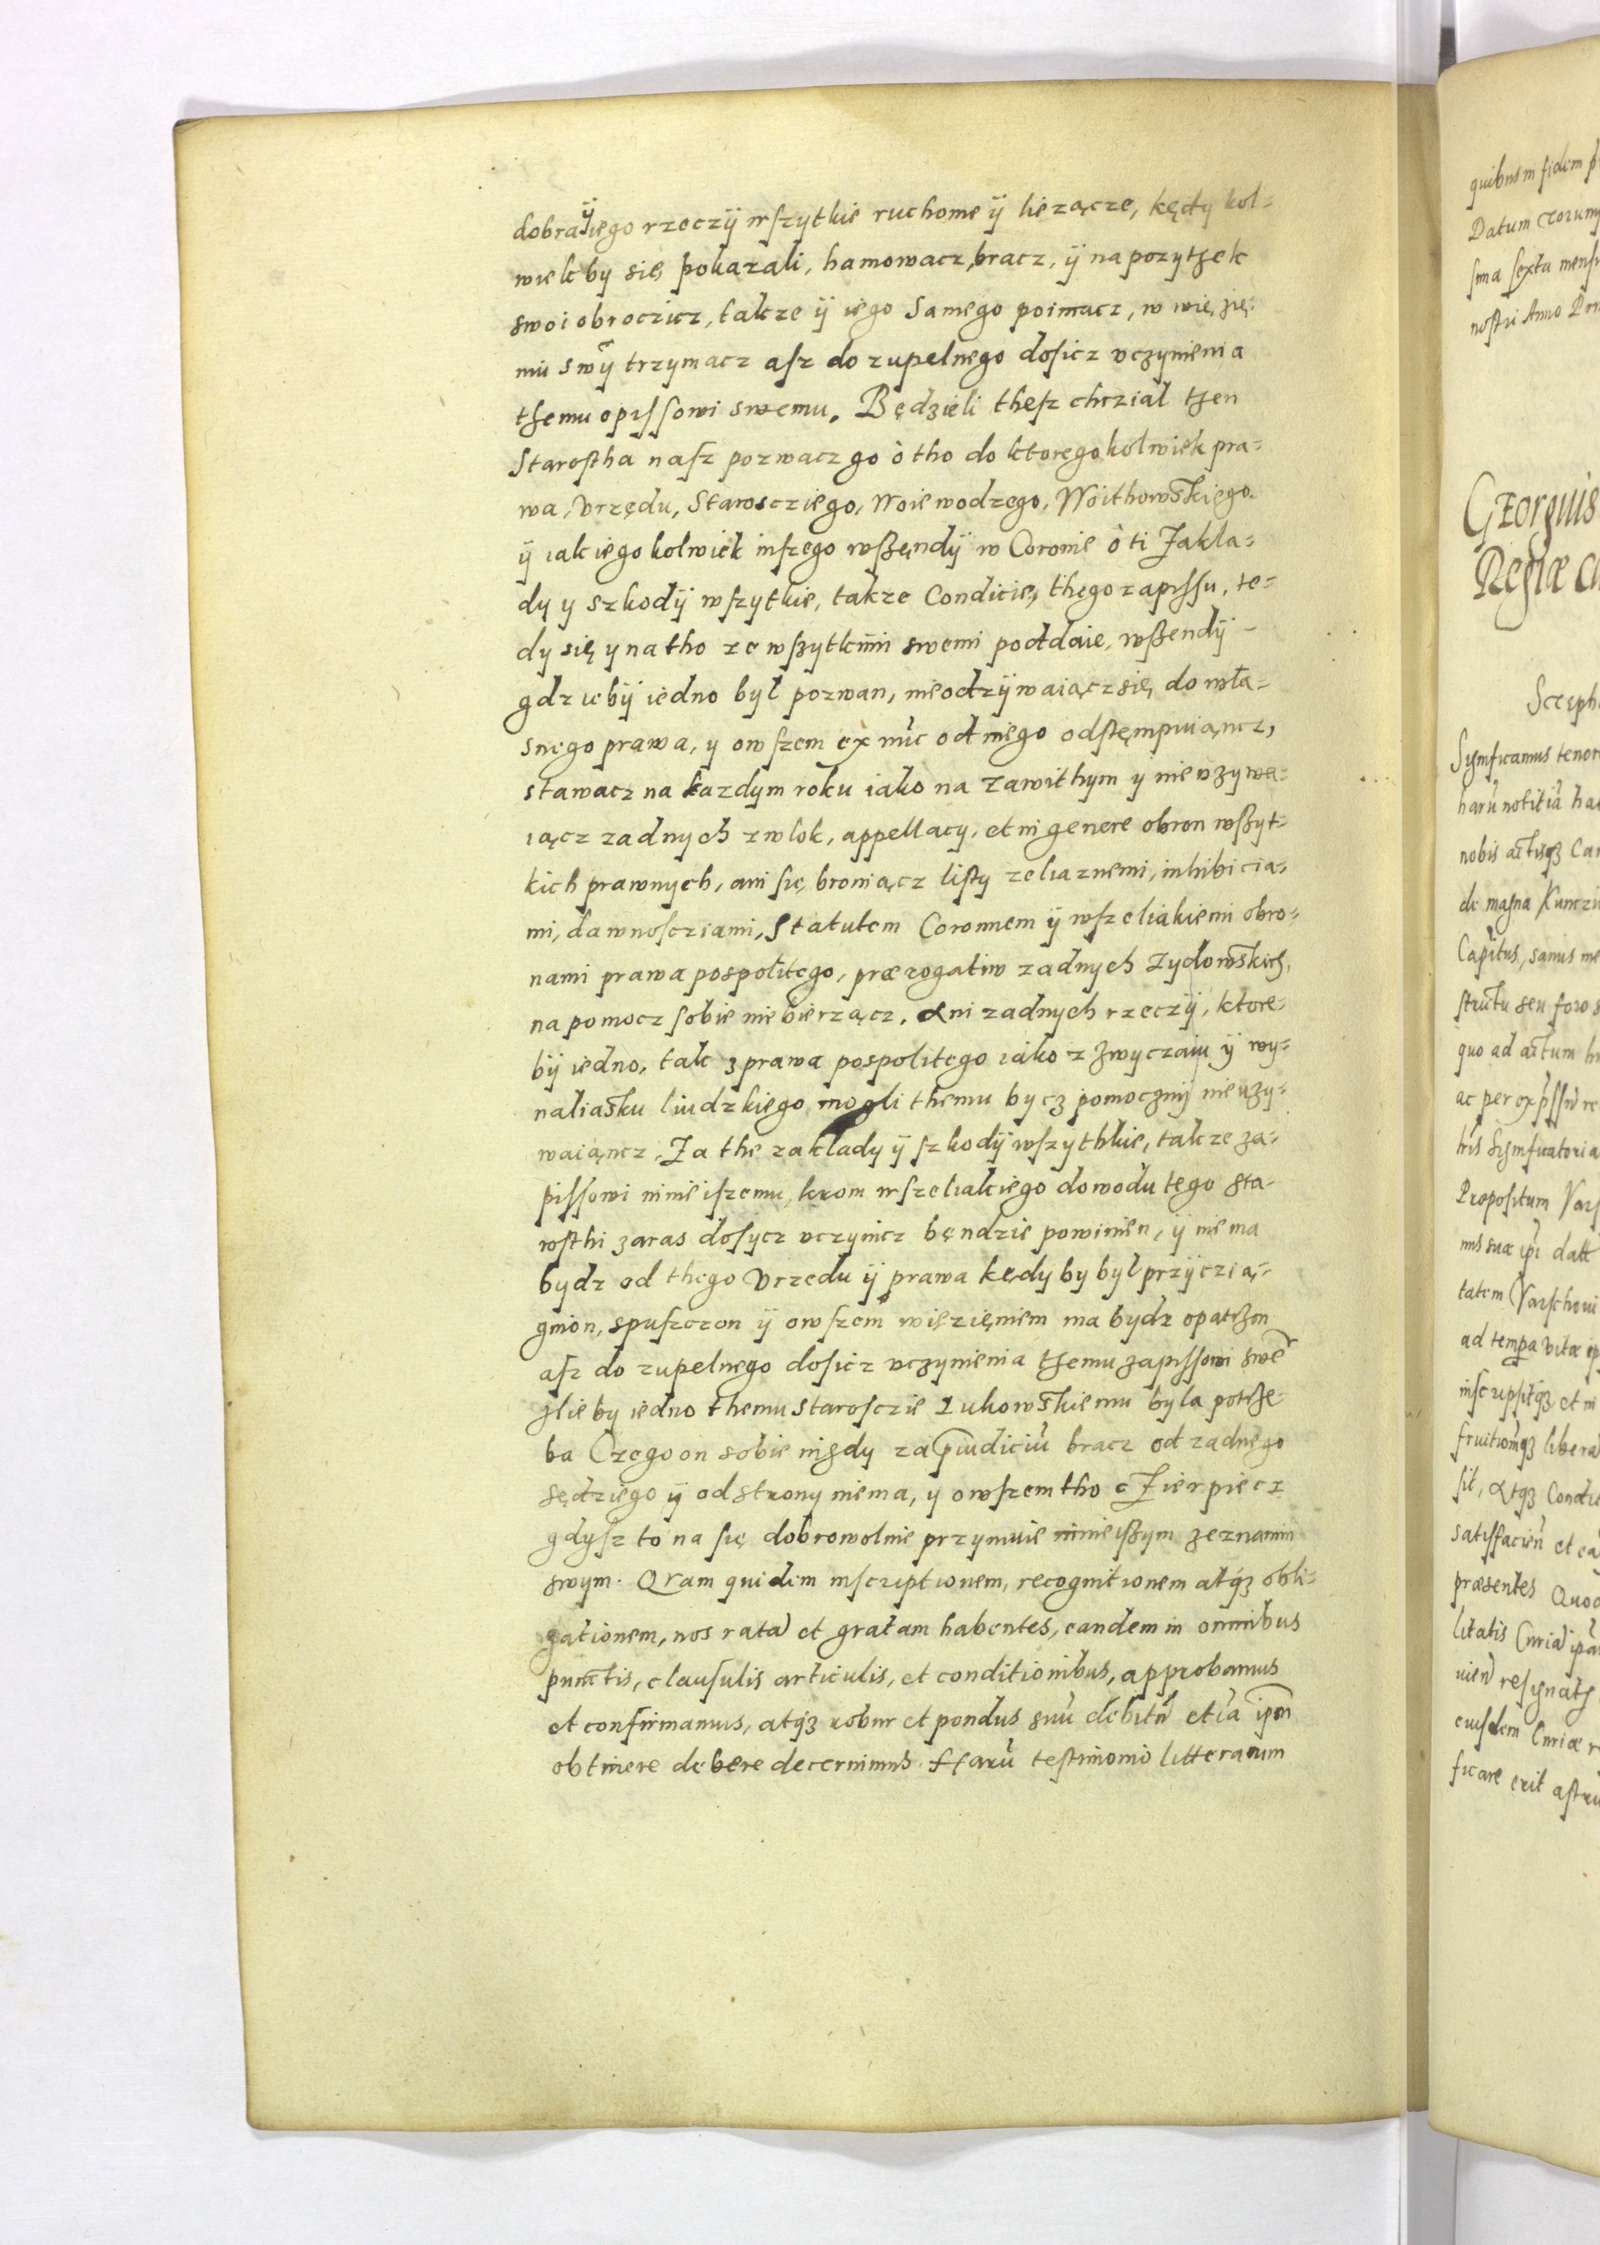 dobra ÿ iego rzeczÿ wszytkie ruchome ÿ liezącze, kędy kol=
wiek by się pokazali, hamowacz, bracz, ÿ na pozythek
swoi obroczicz, takze ÿ iego samego poimacz, w więzię=
niu swÿ trzymacz asz do zupelnego dosicz vczynienia
themu opissowi swemu. Będzieli thesz chczial then
Starostha nasz pozwacz go o tho do ktoregokolwiek pra=
wa, Vrzędu, Starosczіego, Woiewodzego, Woithowskiego
ÿ iakiegokolwiek inszego wszęndÿ w Coronie o ti Zakla=
dy y szkodÿ wszytkie, takze Condicie, thego zapissu, te=
dy się y na tho ze wszytkimi swemi poddaie, wszendÿ
gdziebÿ iedno byl pozwan, nieodzÿwaiącz się do wła=
snego prawa, y owszem ex nūc od niego odstęmpuiąncz,
stawacz na kazdym roku iako na zawithym y nie vzywa=
iącz zadnych zwlok, appellacy, et in genere obron wszyt=
kich prawnych, ani się broniącz listy zeliaznemi, inhibicia=
mi, dawnoscziami, Statutem Coronnem ÿ wszeliakiemi obro=
nami prawa pospolitego, prærogatiw zadnych Zydowskich,
na pomocz sobie nie bierzącz, Ani zadnych rzeczÿ, ktore=
bÿ iedno, tak z prawa pospolitego iako z zwyczaiu ÿ wy=
naliasku liudzkiego mogli themu bycz pomocznÿ nie uzy=
waiąncz, Za the zaklady ÿ szkodÿ wszythkie, takze za=
pissowi ninieiszemu, krom wszeliakiego dowodu tego sta=
rosthi zaras dosycz vczynicz będzie powinien, ÿ nie ma
bydz od thego Vrzedu ÿ prawa kędy by byl przÿczią=
gnion, spuszczon ÿ owszem więzięniem ma bydz opatrzon
asz do zupelnego dosicz vczynienia themu zapissowi swe͠
zlie by iedno themu starosczie Lukowskiemu byla potrze=
ba Czego on sobie nigdy za p̄iudiciū bracz od zadnego
sędziego ÿ od strony niema, y owszem tho cZierpiecz
gdysz to na się dobrowolnie przyimuie ninieiszym zeznanim
swym. Qvam quidem inscriptionem, recognitionem atq̃ obli=
gationem, nos ratā et gratam habentes, eandem in omnibus
punctis, clausulis articulis, et conditionibus, approbamus
et confirmamus, atq̃ robur et pondus suū debitū etiā ip̄m
obtinere debere decernimus. Harū testimonio litterarum
quibus in fidem
Datum
sma sexta mensis
nostri Anno
Georgius
Regiæ
Significamus
harū notitiā
nobis
de magna
Capitus, sanus
quo ad actum
ac per
Præpositum
tatem
ad tempora vitæ
et in
libera
Condi
satisfaciēn
præsentes Quod
litatis Curiā
eiusdem Curiæ
erit